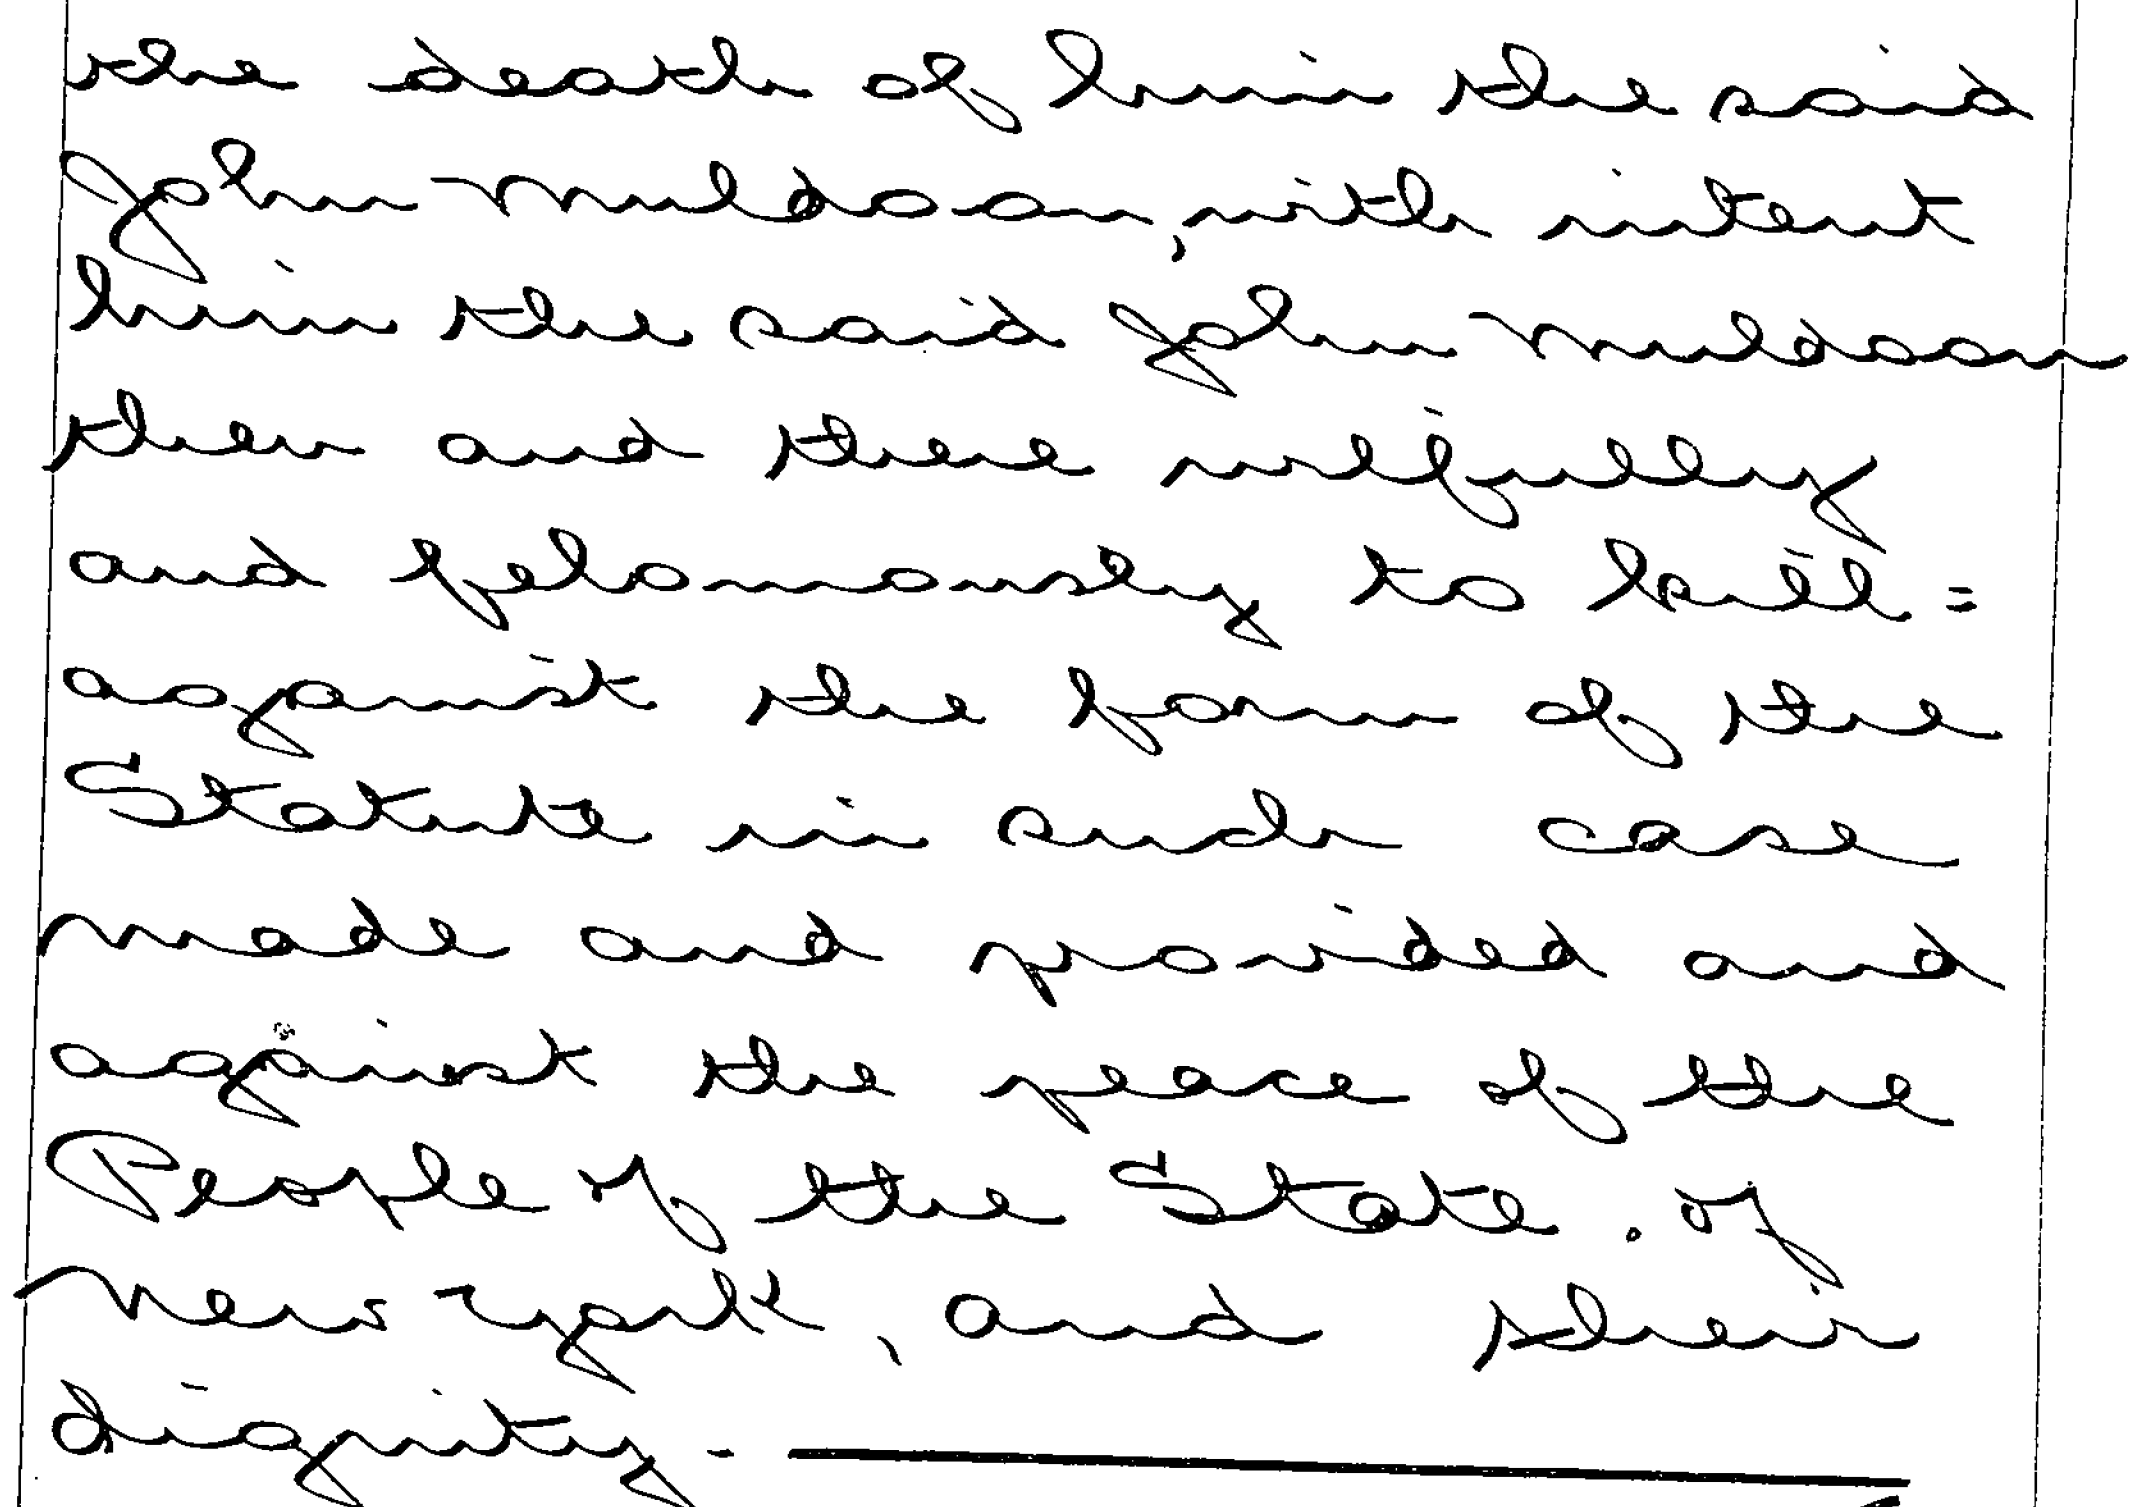 the death of him the said
John Muldoon, with intent
him the said John Muldoon
then and there wilfully
and feloniously to kill =
against the form of the
Statute in such case
made and provided and
against the peace of the
People of the State of
New York, and their
dignity. —